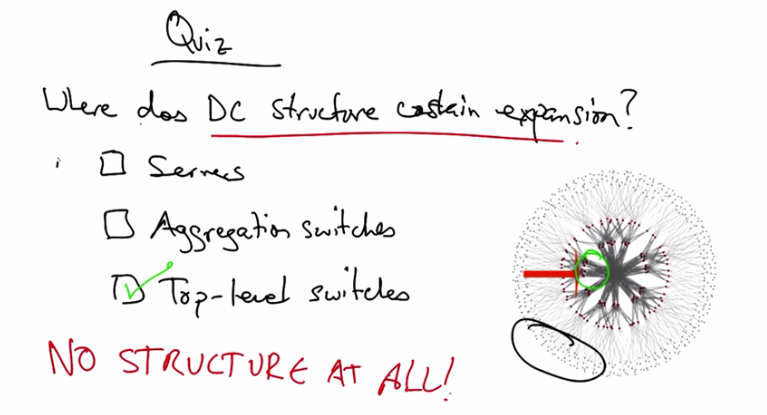 Quiz
Where does DC structure constain expansion?
Servers
Aggregation switches
Top-level switches
NO STRUCTURE AT ALL!